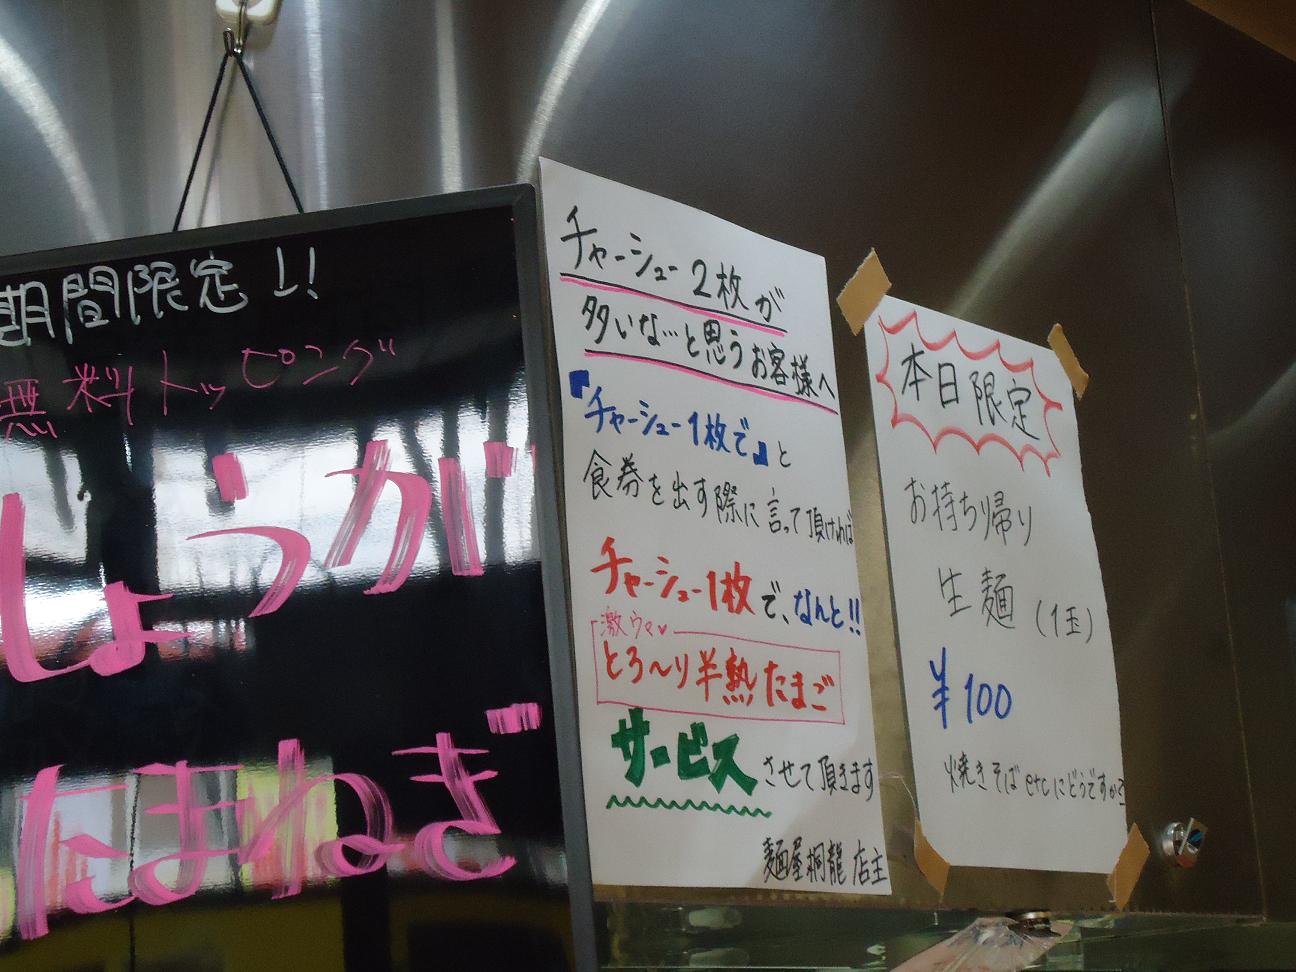 期間限定!!
無料トッピング
しょうが
たまねぎ
チャーシュー2枚が
多いな…と思うお客様へ
『チャーシュー1枚で』と
食券を出す際に言って頂ければ
チャーシュー1枚で、なんと!!
激ウマ♥
とろ〜り半熟たまご
サービスさせて頂きます
麺屋桐龍 店主
本日限定
お持ち帰り
生麺(1玉)
¥100
焼きそばetcにどうですか?